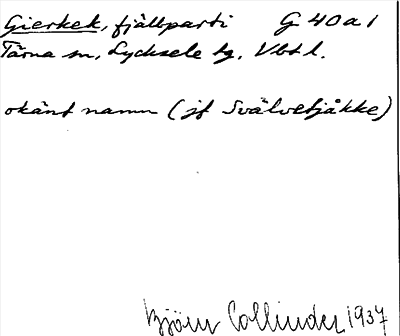 Gierkek, fjällparti G 40 a 1
Tärna sn, Lycksele lg. Vbtl.
okänt namn (jf Svälvetjåkke)
Björn Collinder 1937